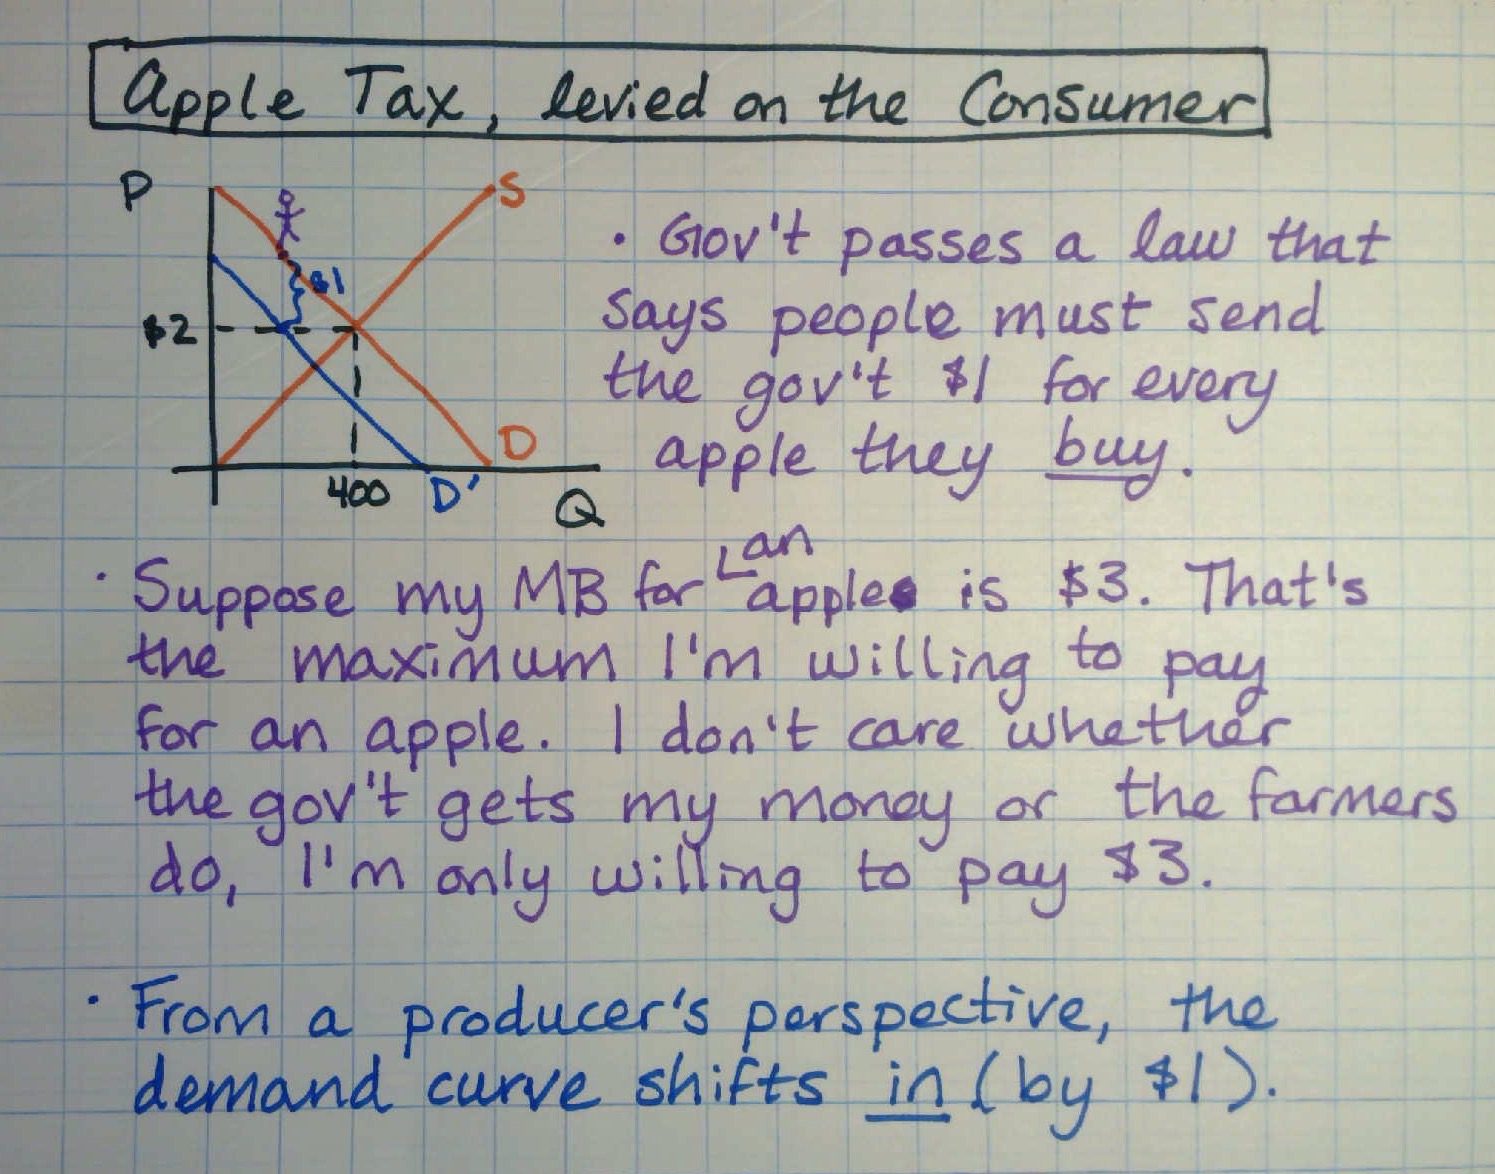 Apple Tax, levied on the Consumer
P
S
$1
$2
D
400
D'
Q
• Gov't passes a law that
says people must send
the gov't $1 for every
apple they buy.
an
• Suppose my MB for apple is $3. That's
the maximum I'm willing to pay
for an apple. I don't care whether
the gov't gets my money or the farmers
do, I'm only willing to pay $3.
• From a producer's perspective, the
demand curve shifts in (by $1).